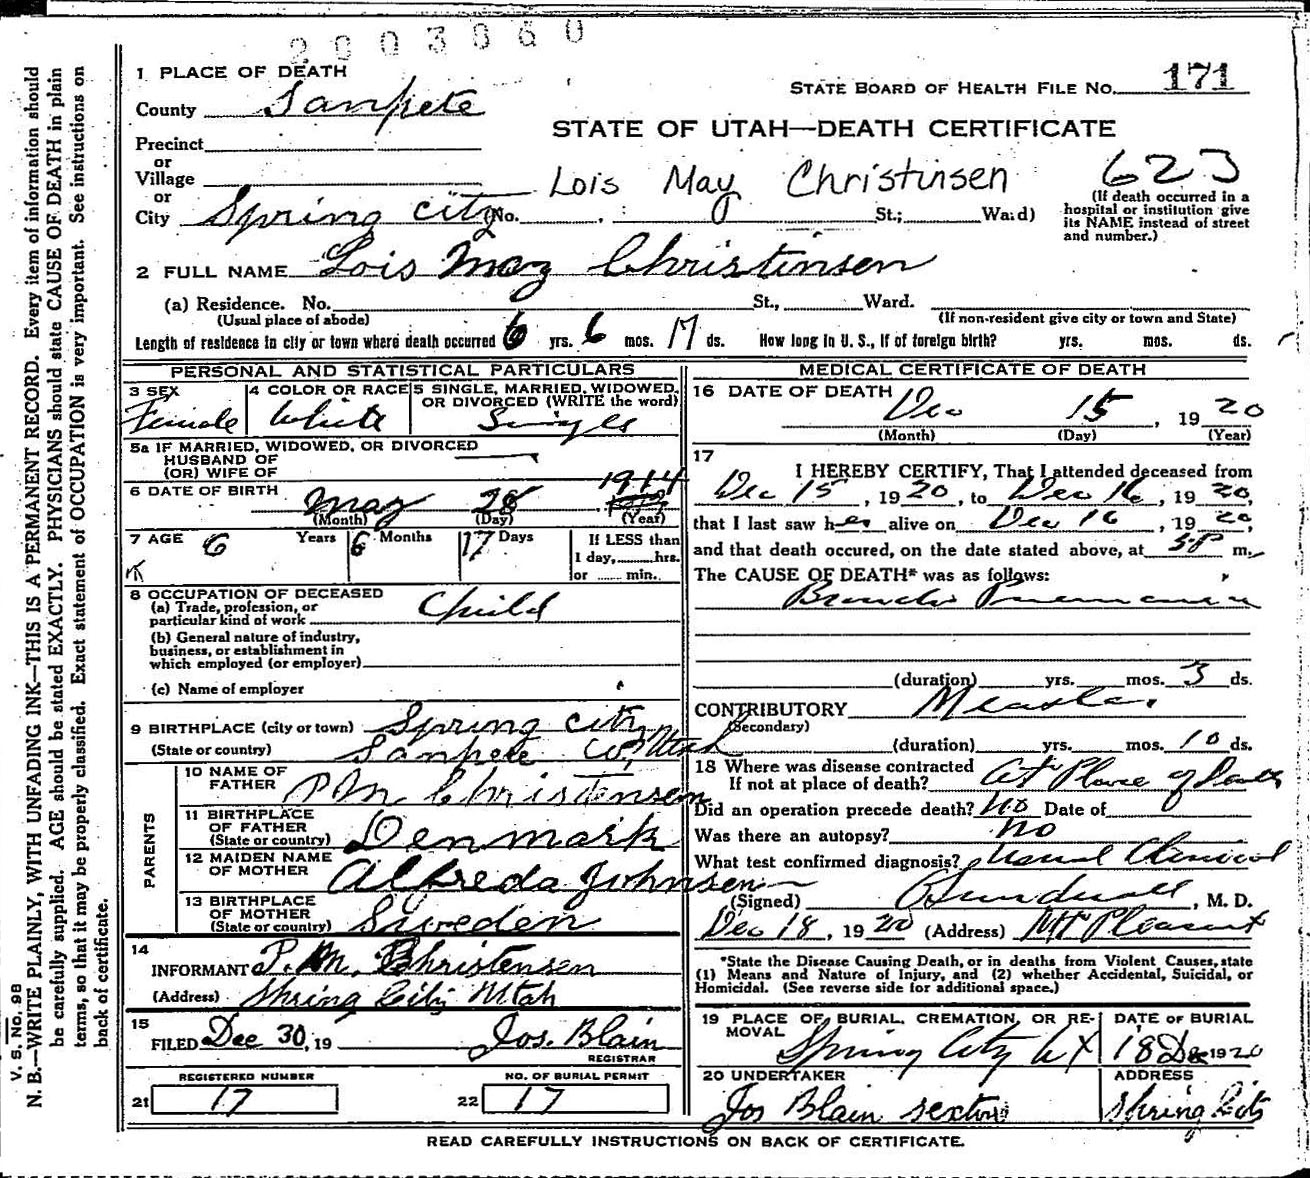 2003060
1 PLACE OF DEATH
STATE BOARD OF HEALTH FILE No. 171
County Sanpete
STATE OF UTAH—DEATH CERTIFICATE
Precinct
or
Village
Lois May Christinsen
623
or
City Spring City (No. St.; Ward)
(If death occurred in a hospital or institution give its NAME instead of street and number.)
2 FULL NAME Lois May Christinsen
(a) Residence. No. St., Ward.
(Usual place of abode)
(If non-resident give city or town and State)
Length of residence in city or town where death occurred 6 yrs. 6 mos. 17 ds. How long in U. S., if of foreign birth? yrs. mos. ds.
PERSONAL AND STATISTICAL PARTICULARS
3 SEX
Female
4 COLOR OR RACE
White
5 SINGLE, MARRIED, WIDOWED,
OR DIVORCED (WRITE the word)
Single
5a IF MARRIED, WIDOWED, OR DIVORCED
HUSBAND OF
(OR) WIFE OF
6 DATE OF BIRTH May 28 1914
(Month) (Day) (Year)
7 AGE 6 Years 6 Months 17 Days
If LESS than
1 day,......hrs.
or ...... min.
8 OCCUPATION OF DECEASED
(a) Trade, profession, or
particular kind of work Child
(b) General nature of industry,
business, or establishment in
which employed (or employer)
(c) Name of employer
9 BIRTHPLACE (city or town) Spring City
(State or country) Sanpete Co, Utah
PARENTS
10 NAME OF
FATHER P M Christensen
11 BIRTHPLACE
OF FATHER
(State or country) Denmark
12 MAIDEN NAME
OF MOTHER Alfreda Johnsen
13 BIRTHPLACE
OF MOTHER
(State or country) Sweden
14
INFORMANT P. M. Christensen
(Address) Spring City Utah
15
FILED Dec 30, 19 Jos. Blain
REGISTRAR
REGISTERED NUMBER
21 17
NO. OF BURIAL PERMIT
22 17
MEDICAL CERTIFICATE OF DEATH
16 DATE OF DEATH
Dec 15, 19 20
(Month) (Day) (Year)
17
I HEREBY CERTIFY, That I attended deceased from
Dec 15, 19 20, to Dec 16, 19 20,
that I last saw her alive on Dec 16, 19 20,
and that death occured, on the date stated above, at 5 P m.
The CAUSE OF DEATH* was as follows:
Broncho Pneumonia
(duration) yrs. mos. 3 ds.
CONTRIBUTORY Measles.
(Secondary)
(duration) yrs. mos. 10 ds.
18 Where was disease contracted
If not at place of death? At Place of Death
Did an operation precede death? No Date of
Was there an autopsy? no
What test confirmed diagnosis? Usual Clinical
(Signed) Sundwall, M. D.
Dec 18, 19 20 (Address) Mt Pleasant
*State the Disease Causing Death, or in deaths from Violent Causes, state
(1) Means and Nature of Injury, and (2) whether Accidental, Suicidal, or
Homicidal. (See reverse side for additional space.)
19 PLACE OF BURIAL, CREMATION, OR RE-
MOVAL Spring City
DATE OF BURIAL
18 Dec 1920
20 UNDERTAKER
Jos Blain sexton
ADDRESS
Spring City
READ CAREFULLY INSTRUCTIONS ON BACK OF CERTIFICATE.
V. S. NO. 98
N. B.—WRITE PLAINLY, WITH UNFADING INK—THIS IS A PERMANENT RECORD. Every item of information should
be carefully supplied. AGE should be stated EXACTLY. PHYSICIANS should state CAUSE OF DEATH in plain
terms, so that it may be properly classified. Exact statement of OCCUPATION is very important. See instructions on
back of certificate.